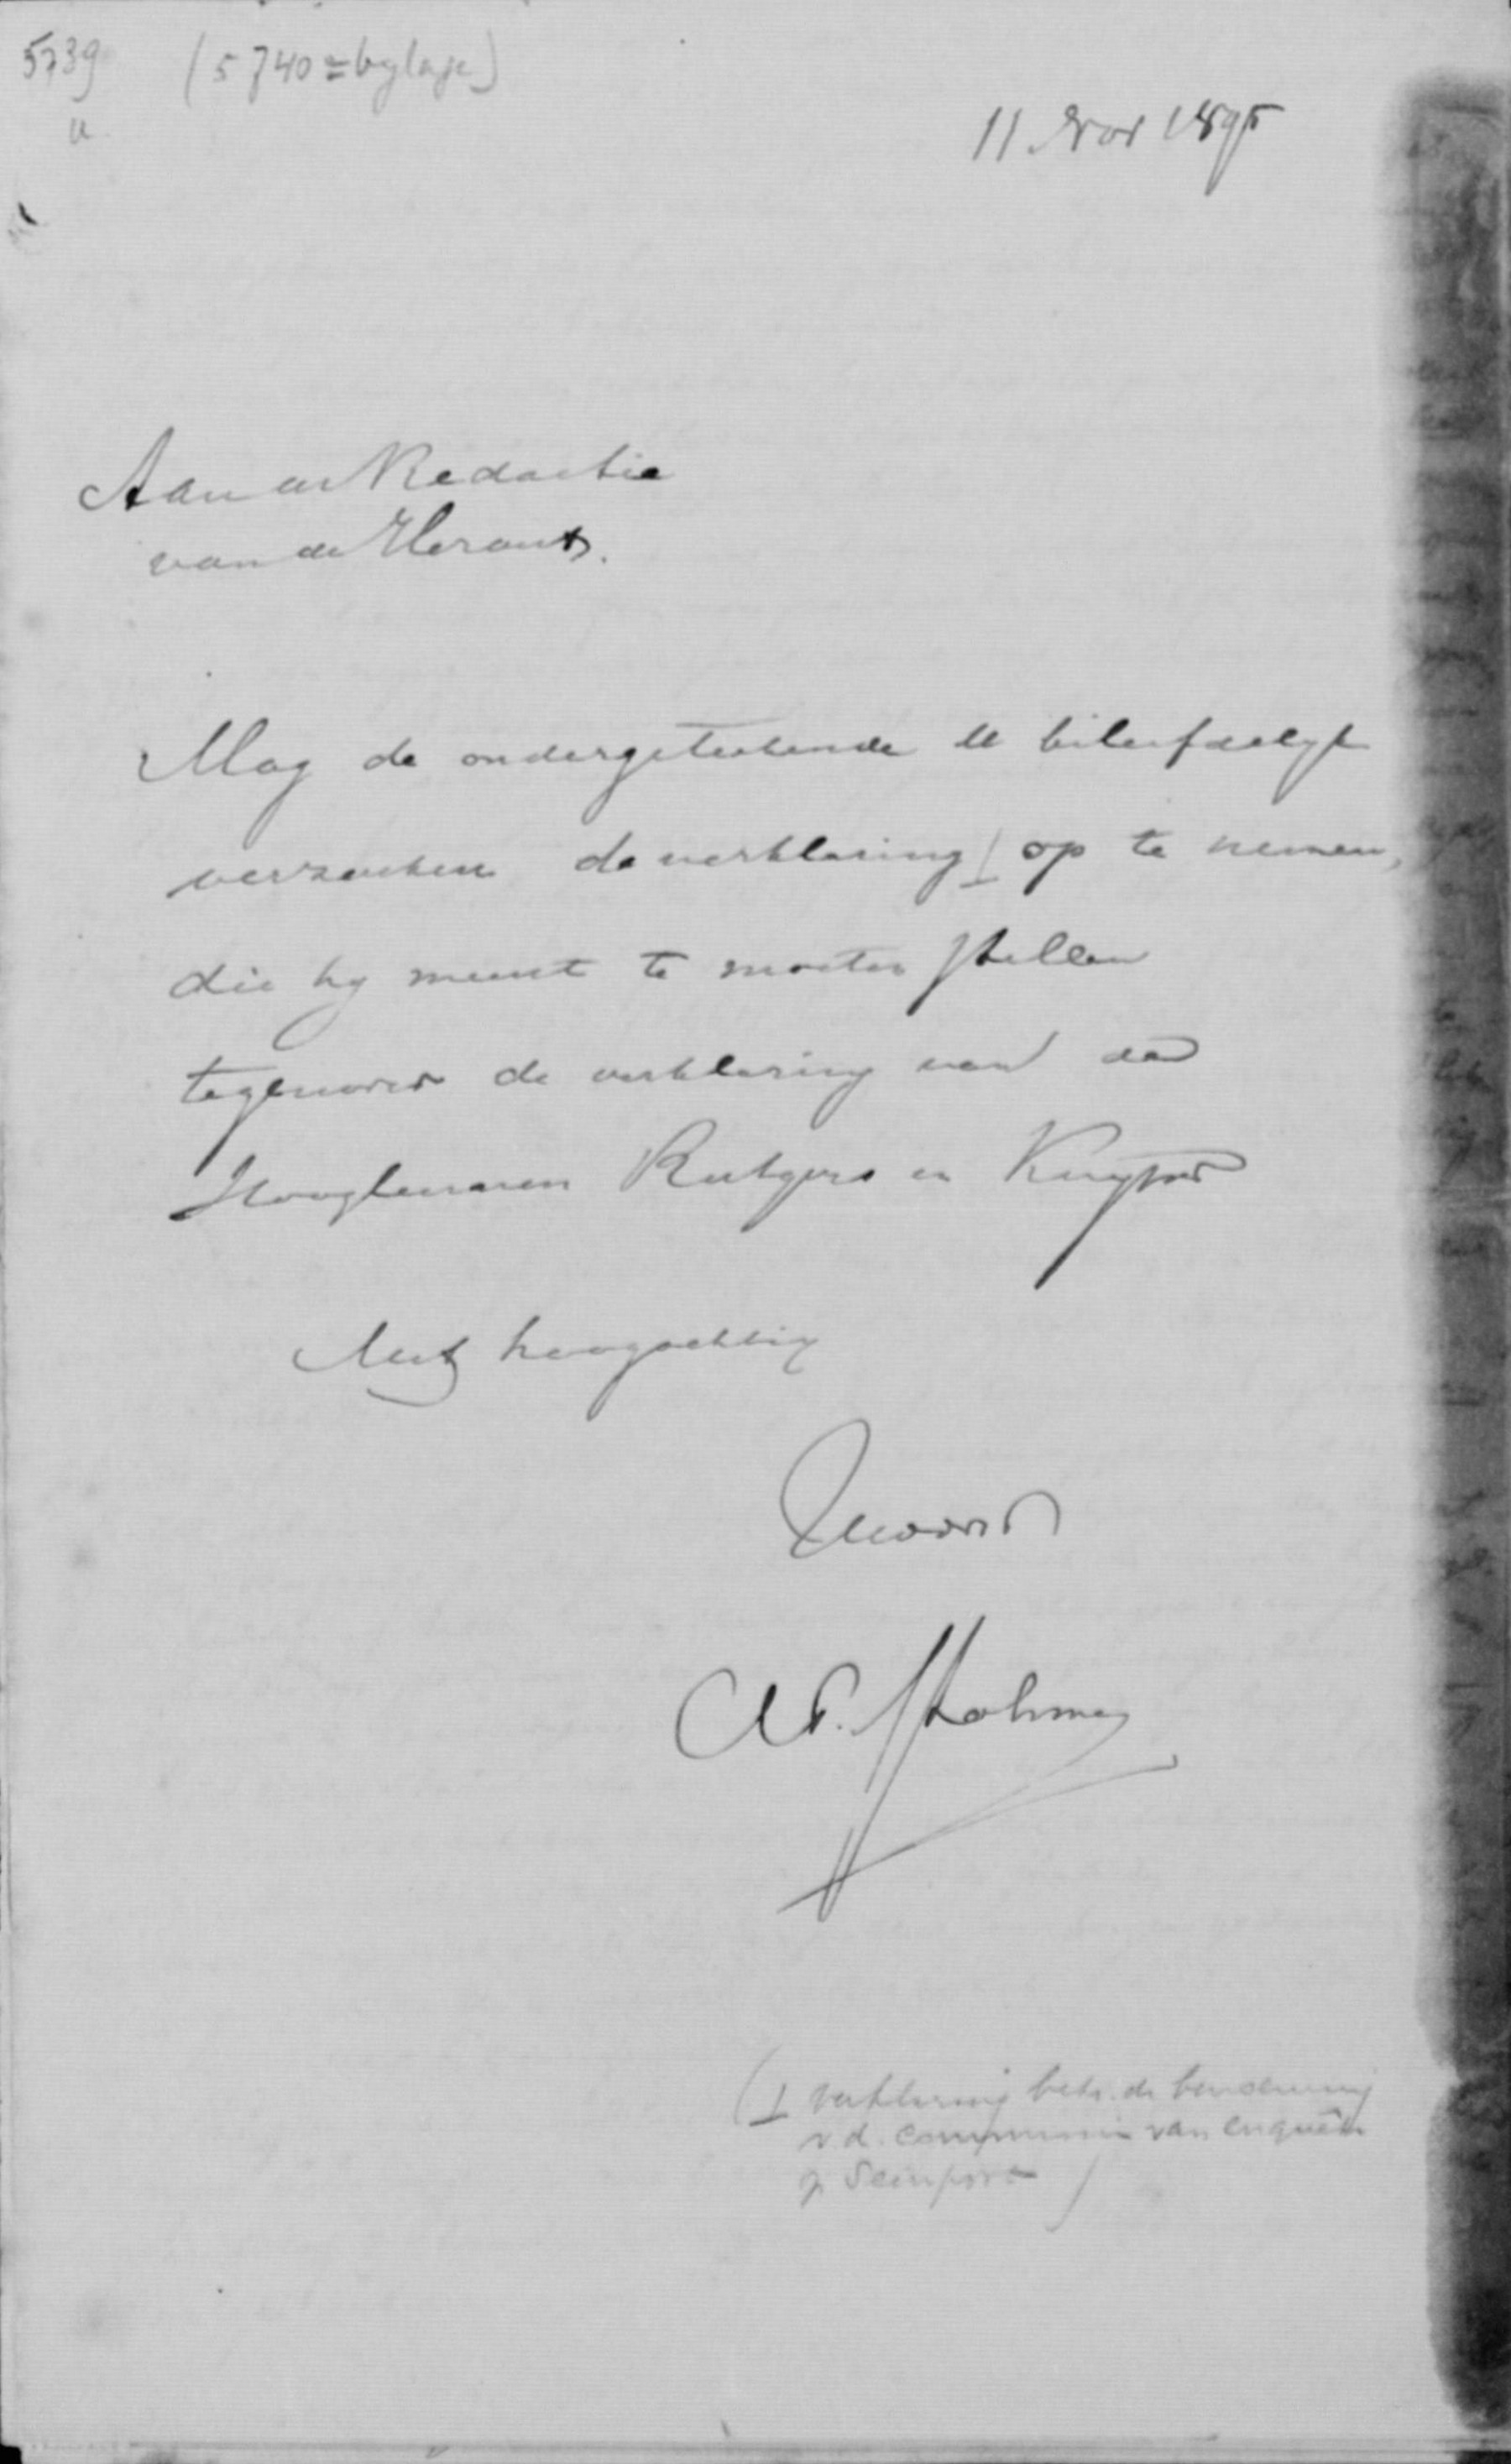 5739
(5740 = bylage)
11 Nov 1895
Aan de Redactie
van de Heraut.
Mag de ondergeteekende U beleefdelyk
verzoeken de verklaring I op te nemen,
die hy meent te moeten stellen
tegenover de verklaring van de
Hoogleeraren Rutgers en Kuyper
Met hoogachting
AF. S Lohman
(I verklaring betr. de benoeming
v.d. commissie van enquête
op Seinpost)